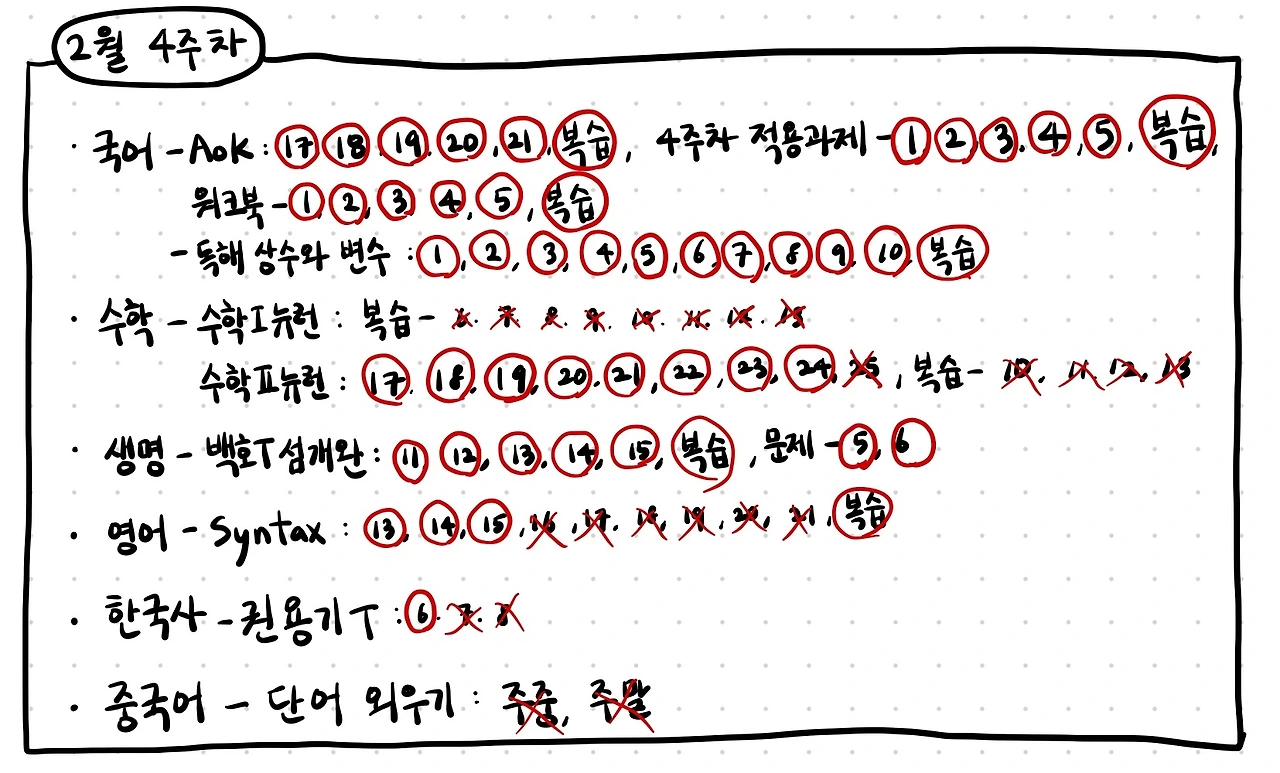 2월 4주차
· 국어 - AOK : 17, 18, 19, 20, 21, 복습, 4주차 적용과제 - 1, 2, 3, 4, 5, 복습,
워크북 - 1, 2, 3, 4, 5, 복습
- 독해 상수와 변수 : 1, 2, 3, 4, 5, 6, 7, 8, 9, 10, 복습
· 수학 - 수학I뉴런 : 복습 - 6, 7, 8, 9, 10, 11, 12, 13
수학II뉴런 : 17, 18, 19, 20, 21, 22, 23, 24, 25, 복습 - 10, 11, 12, 13
· 생명 - 백호T 섬개완 : 11, 12, 13, 14, 15, 복습, 문제 - 5, 6
· 영어 - Syntax : 13, 14, 15, 16, 17, 18, 19, 20, 21, 복습
· 한국사 - 권용기T : 6, 7, 8
· 중국어 - 단어 외우기 : 주중, 주말